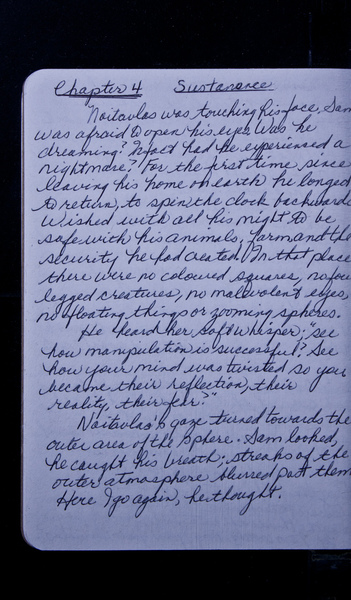 Chapter 4 Sustanance
Noitavlas was touching his face. Sam
was afraid to open his eyes. Was he
dreaming? In fact had he experienced a
nightmare? For the first time since
leaving his home on earth he longed
to return, to spin the clock backwards
Wished with all his might to be
safe with his animals, farm and the
security he had created. In that place
there were no coloured squares, no four
legged creatures, no malevolent eyes,
no floating things or zooming spheres.
He heard her soft whisper; "see
how manipulation is successful? See
how your mind was twisted so you
became their reflection, their
reality, their fear?"
Noitavlas's gaze turned towards the
outer area of the sphere. Sam looked,
he caught his breath; streaks of the
outer atmosphere blurred past them
Here I go again, he thought.